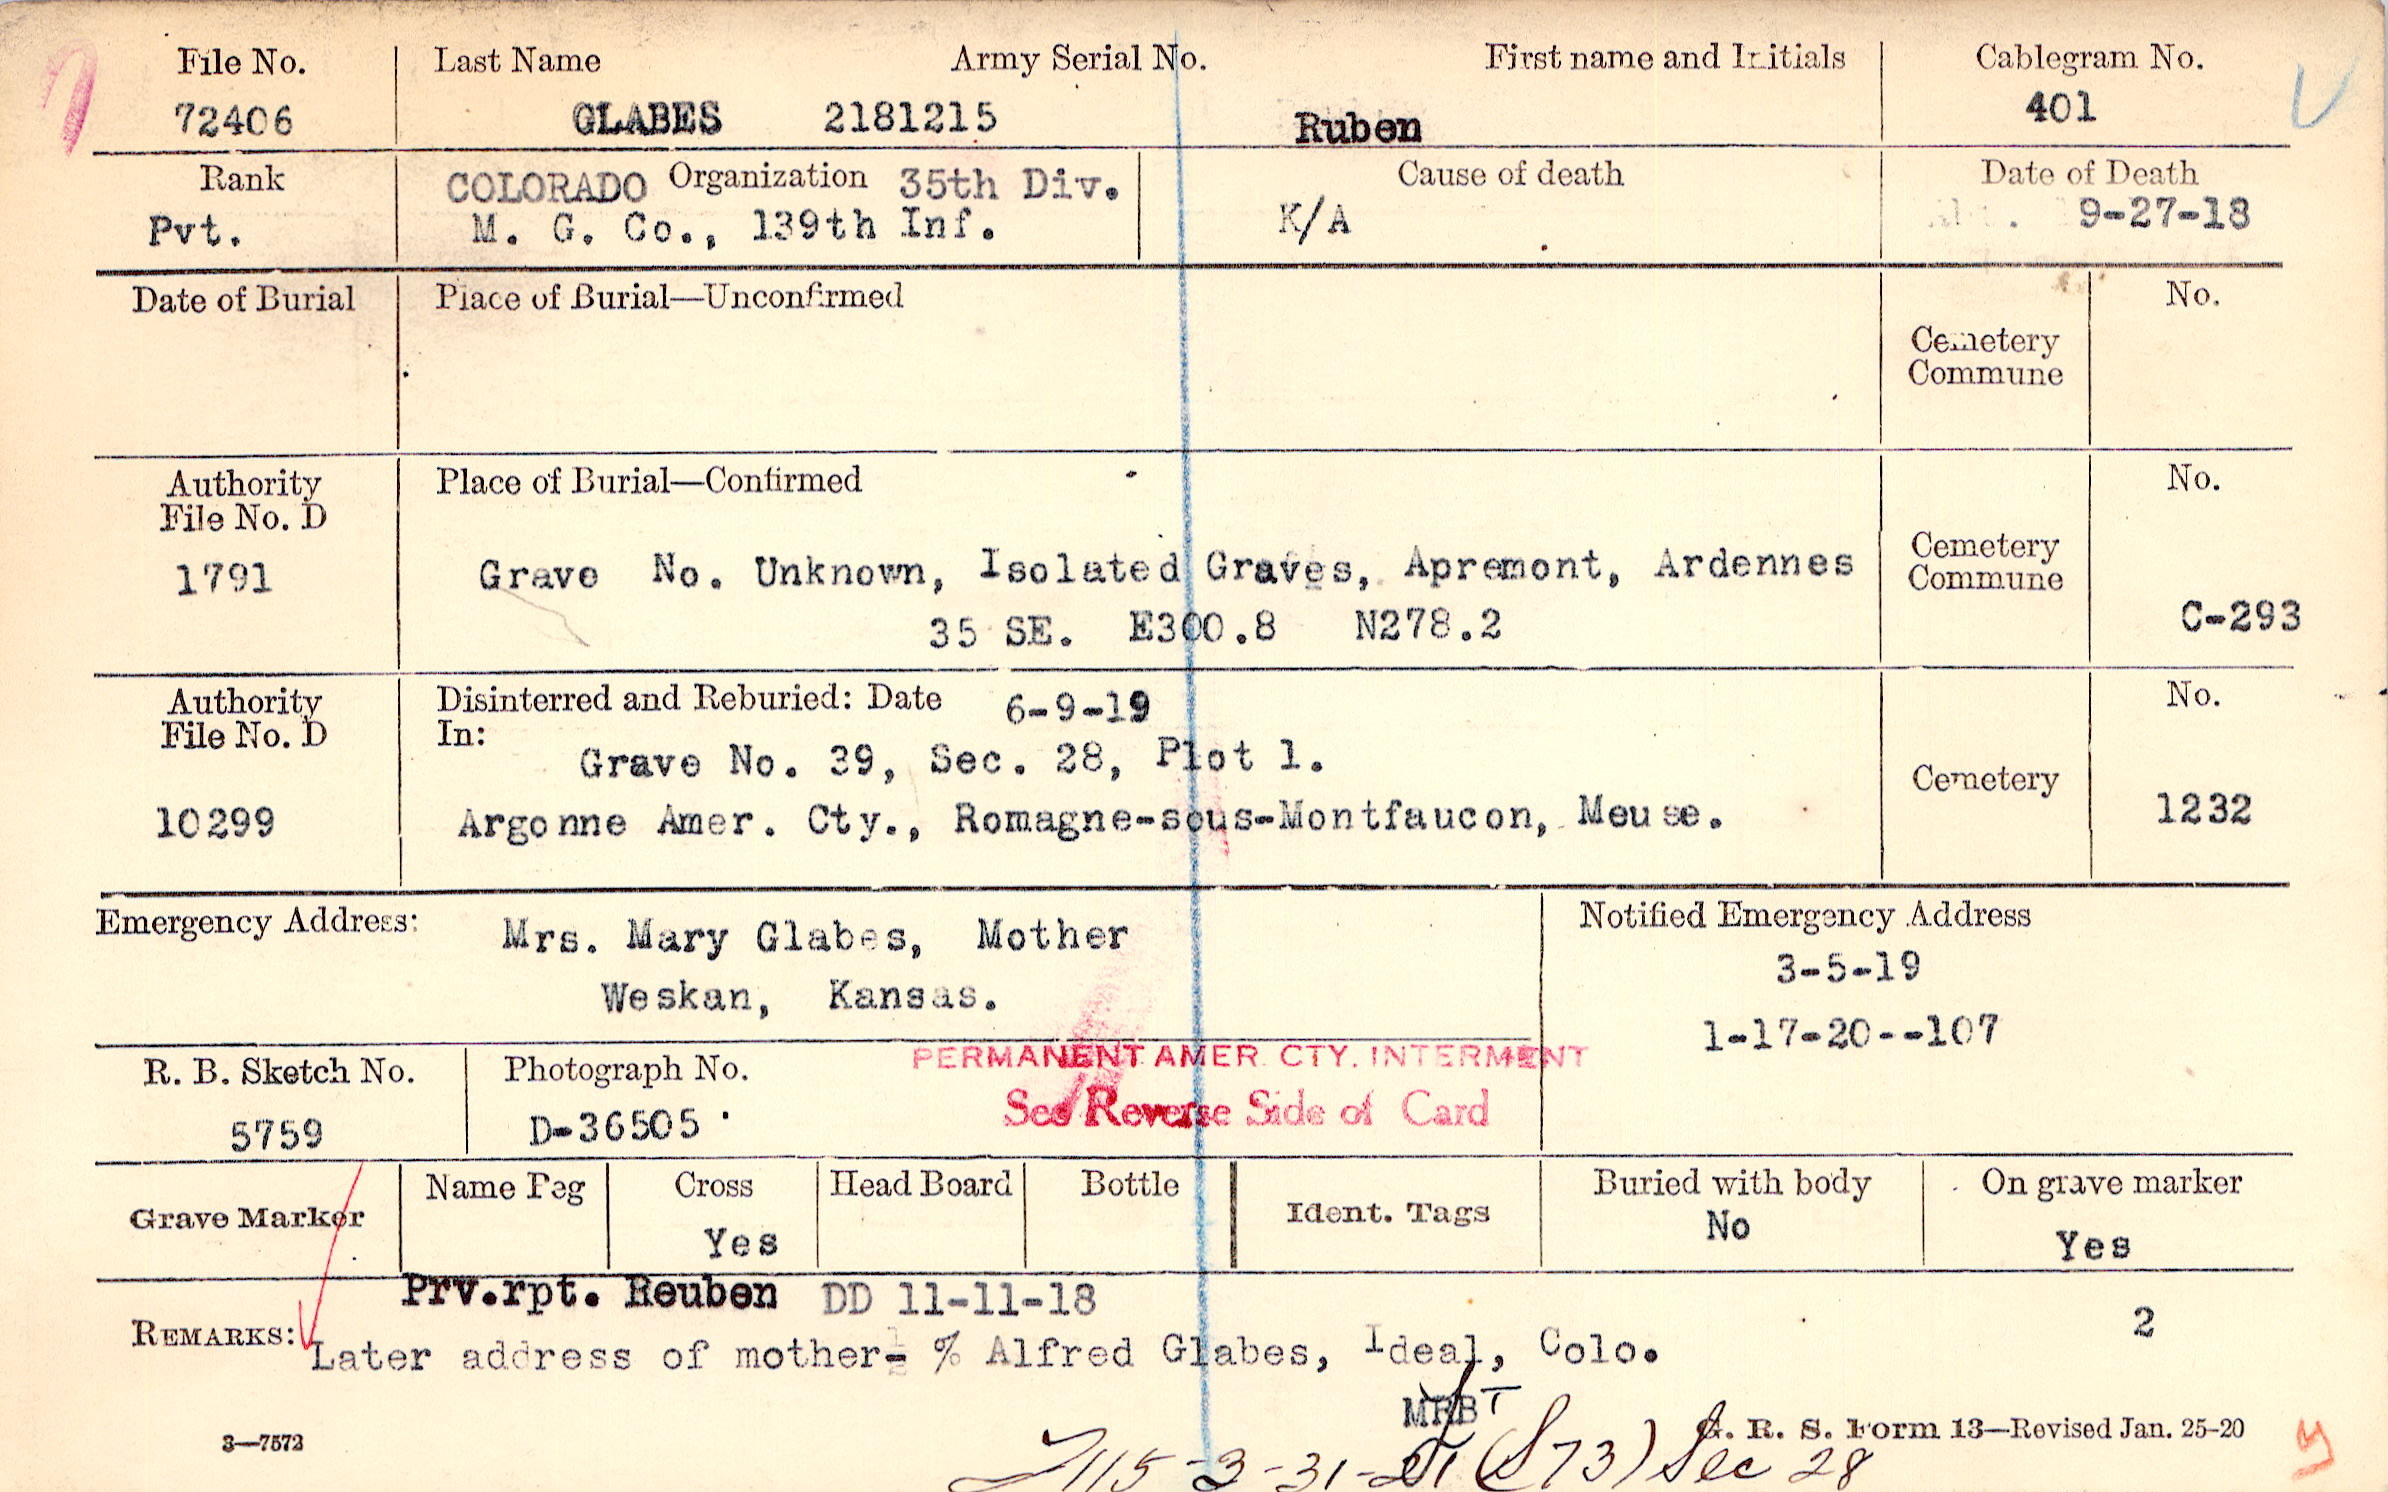 File No. Last Name Army Serial No. First name and Initials Cablegram No.
72406 GLABES 2181215 Ruben 401
Rank COLORADO Organization 35th Div. Cause of death Date of Death
Pvt. M. G. Co., 139th Inf. K/A 9-27-18
Date of Burial Place of Burial—Unconfirmed No.
Cemetery
Commune
Authority Place of Burial—Confirmed No.
File No. D
1791 Grave No. Unknown, Isolated Graves, Apremont, Ardennes Cemetery
Commune
35 SE. E300.8 N278.2 C-293
Authority Disinterred and Reburied: Date 6-9-19 No.
File No. D In:
Grave No. 39, Sec. 28, Plot 1. Cemetery
10299 Argonne Amer. Cty., Romagne-sous-Montfaucon, Meuse. 1232
Emergency Address: Mrs. Mary Glabes, Mother Notified Emergency Address
Weskan, Kansas. 3-5-19
1-17-20--107
R. B. Sketch No. Photograph No. PERMANENT AMER. CTY. INTERMENT
5759 D-36505 See Reverse Side of Card
Grave Marker Name Peg Cross Head Board Bottle Ident. Tags Buried with body On grave marker
Yes No Yes
Prv.rpt. Reuben DD 11-11-18 2
REMARKS: Later address of mother- % Alfred Glabes, Ideal, Colo.
MRB
3—7572 G. R. S. Form 13—Revised Jan. 25-20
(S73) Sec 28